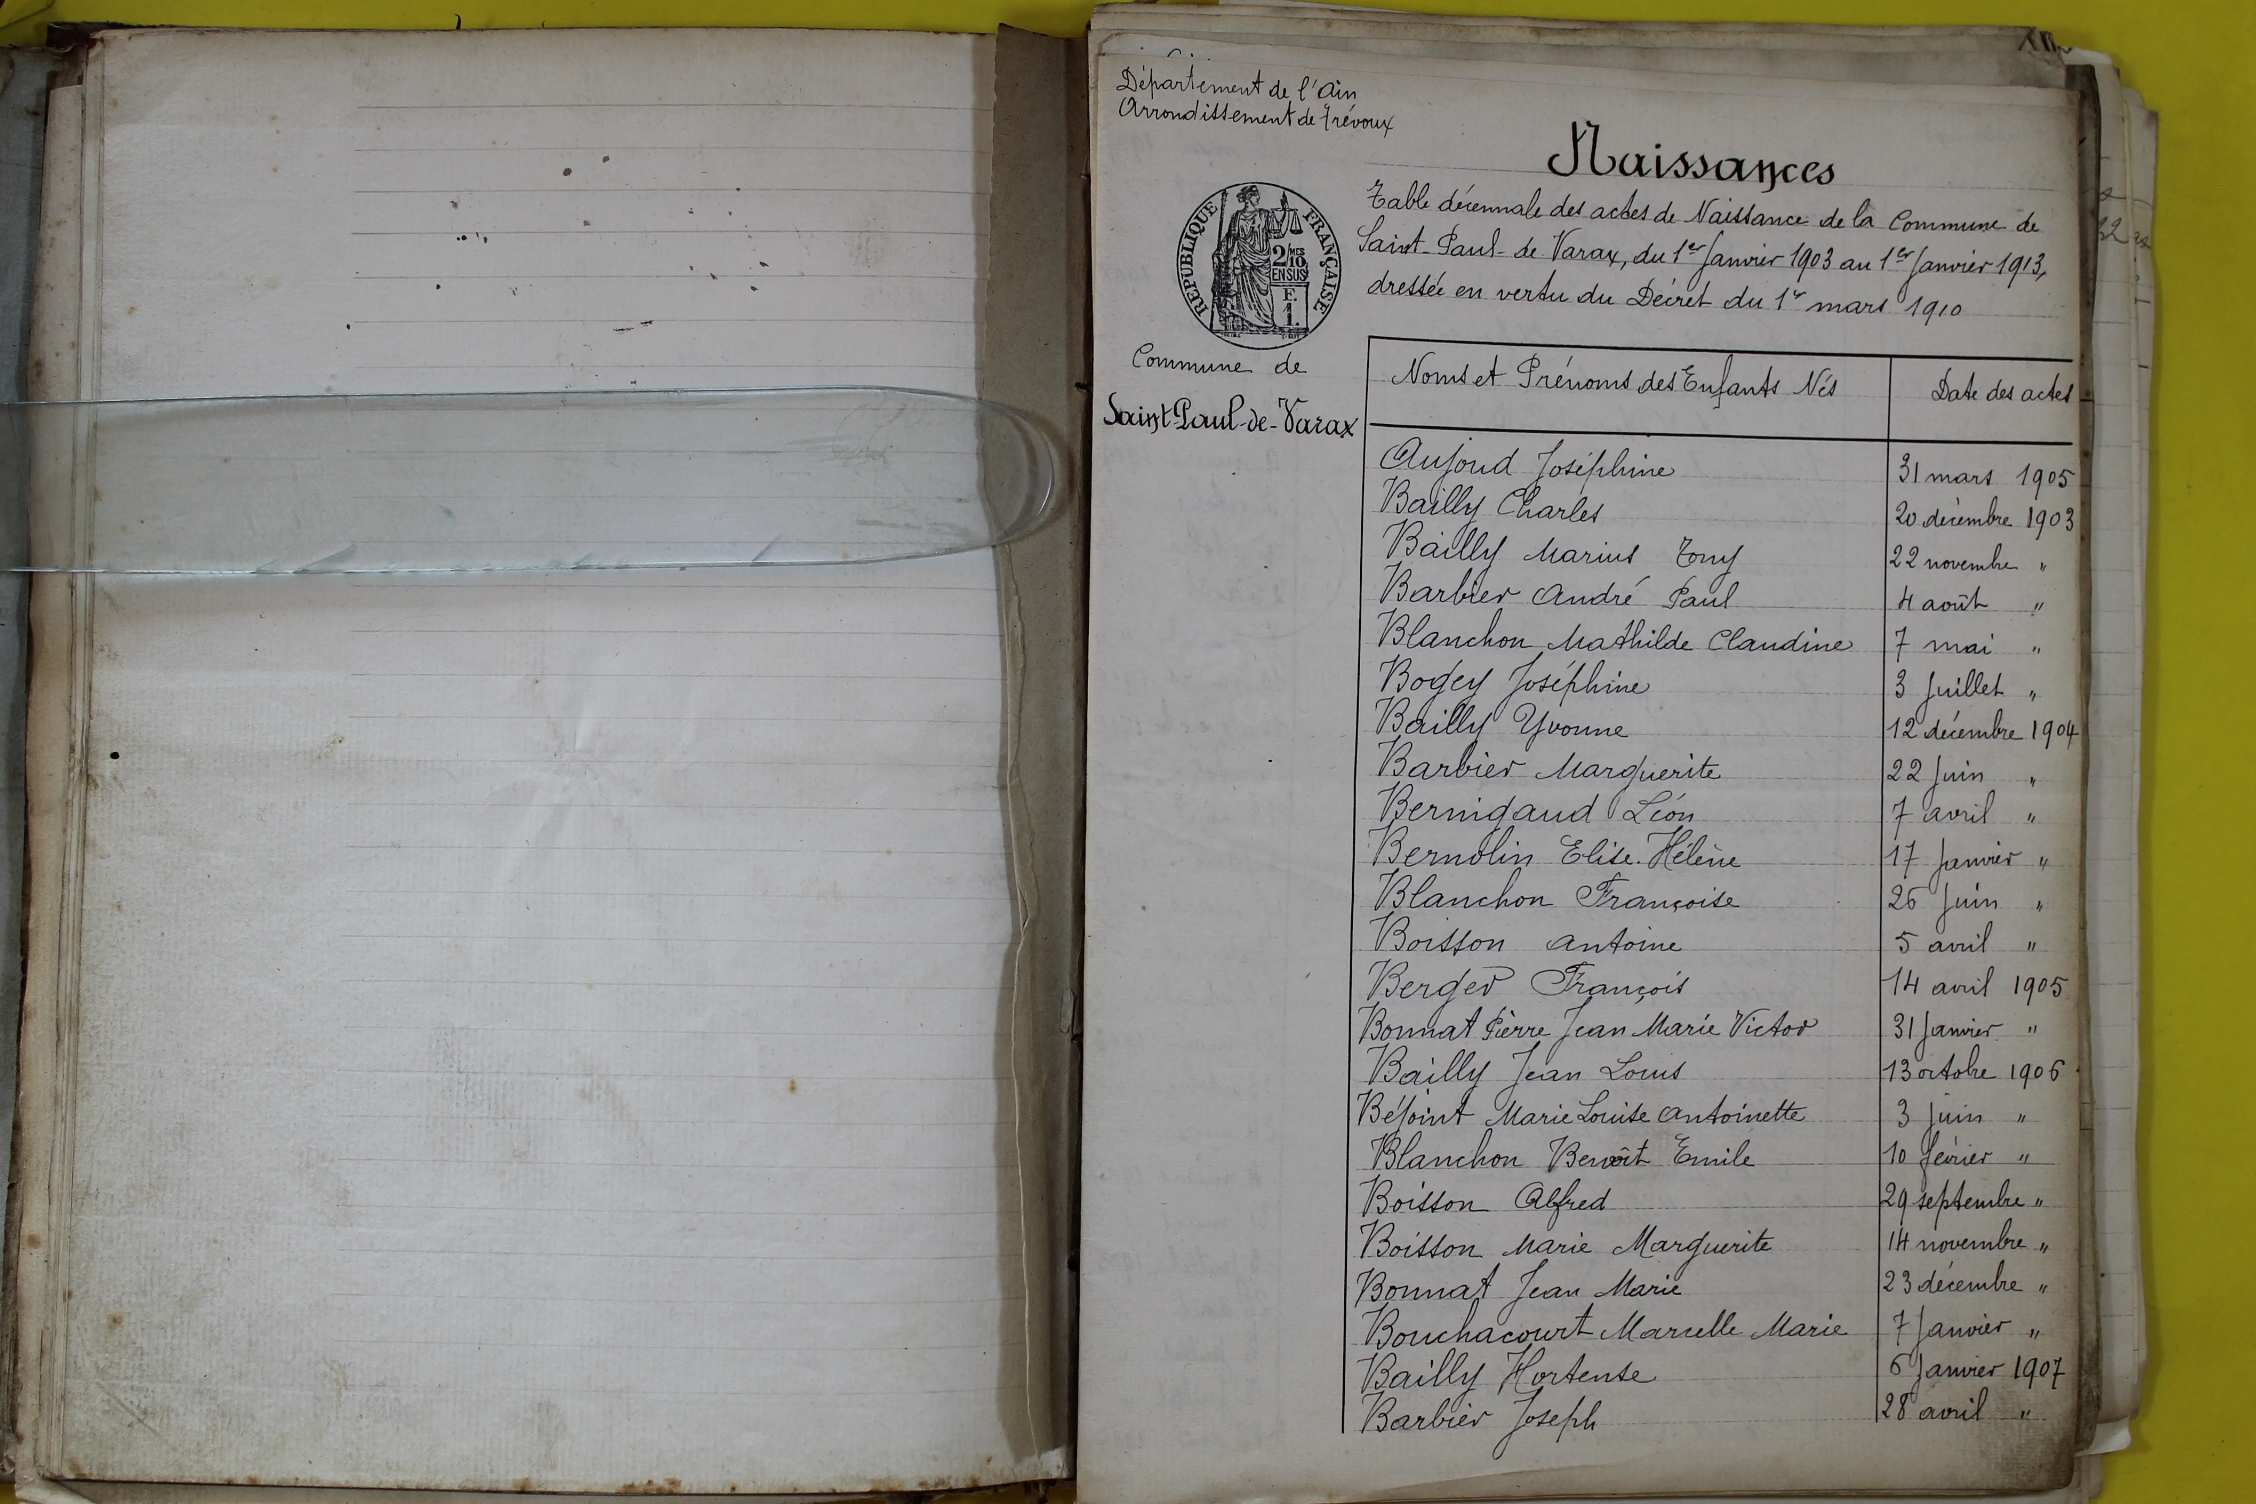 Département de l'Ain
Arrondissement de Trévoux
Naissances
RÉPUBLIQUE FRANÇAISE
2/10 MES
EN SUS
F.
1.
Table décennale des actes de Naissance de la Commune de
Saint-Paul-de Varax, du 1er Janvier 1903 au 1er Janvier 1913,
dressée en vertu du Décret du 1er mars 1910
Commune de
Saint-Paul-de-Varax
Noms et Prénoms des Enfants Nés Date des actes
Aujoud Joséphine 31 mars 1905
Bailly Charles 20 décembre 1903
Bailly Marius Tony 22 novembre "
Barbier André Paul 4 août "
Blanchon Mathilde Claudine 7 mai "
Bogey Joséphine 3 Juillet "
Bailly Yvonne 12 décembre 1904
Barbier Marguerite 22 Juin "
Bernigaud Léon 7 avril "
Bernolin Elise Hélène 17 Janvier "
Blanchon Françoise 26 Juin "
Boisson Antoine 5 avril "
Berger François 14 avril 1905
Bonnat Pierre Jean Marie Victor 31 Janvier "
Bailly Jean Louis 13 octobre 1906
Béjoint Marie Louise Antoinette 3 juin "
Blanchon Benoît Emile 10 février "
Boisson Alfred 29 septembre "
Boisson Marie Marguerite 14 novembre "
Bonnat Jean Marie 23 décembre "
Bouchacourt Marcelle Marie 7 Janvier "
Bailly Hortense 6 Janvier 1907
Barbier Joseph 28 avril "